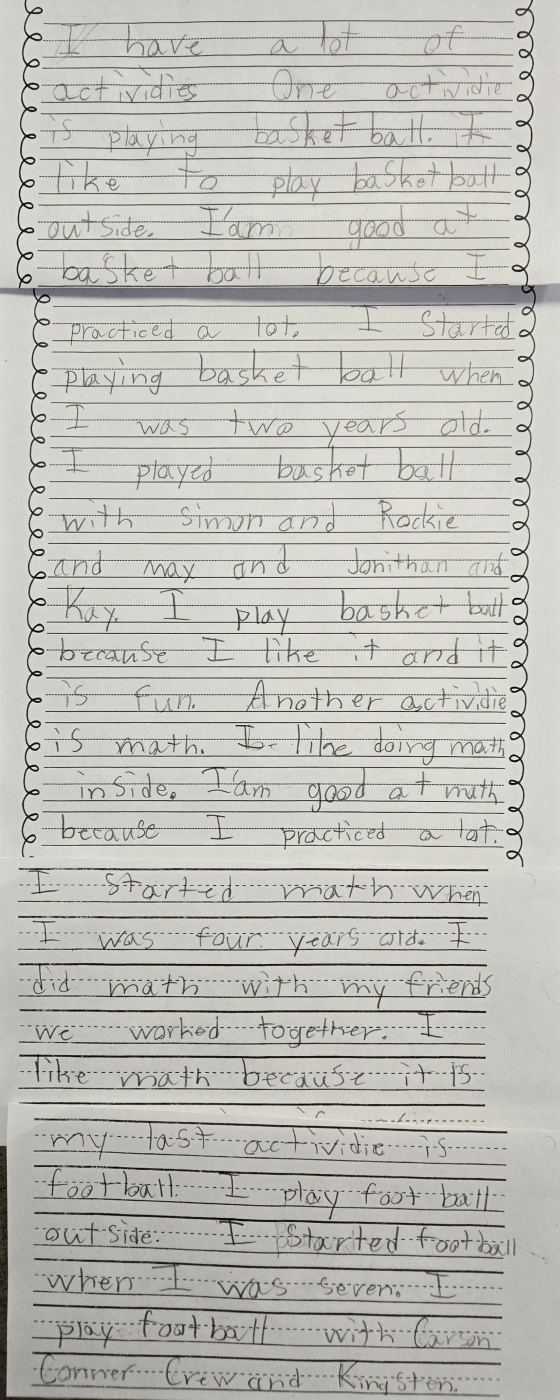 I have a lot of
actividies One actividie
is playing basket ball. I
like to play basketball
outside. I'am good at
basket ball because I
practiced a lot. I Started
playing basket ball when
I was two years old.
I played basket ball
with simon and Rockie
and may and Jonithan and
Kay. I play basket ball
because I like it and it
is fun. Another actividie
is math. I like doing math
inside. I'am good at math
because I practiced a lot.
I Started math when
I was four years old. I
did math with my friends
we worked together. I
like math because it is
my last actividie is
football. I play foot ball
outside. I Started football
when I was seven. I
play football with Carson
Conner Crew and Kingsten.